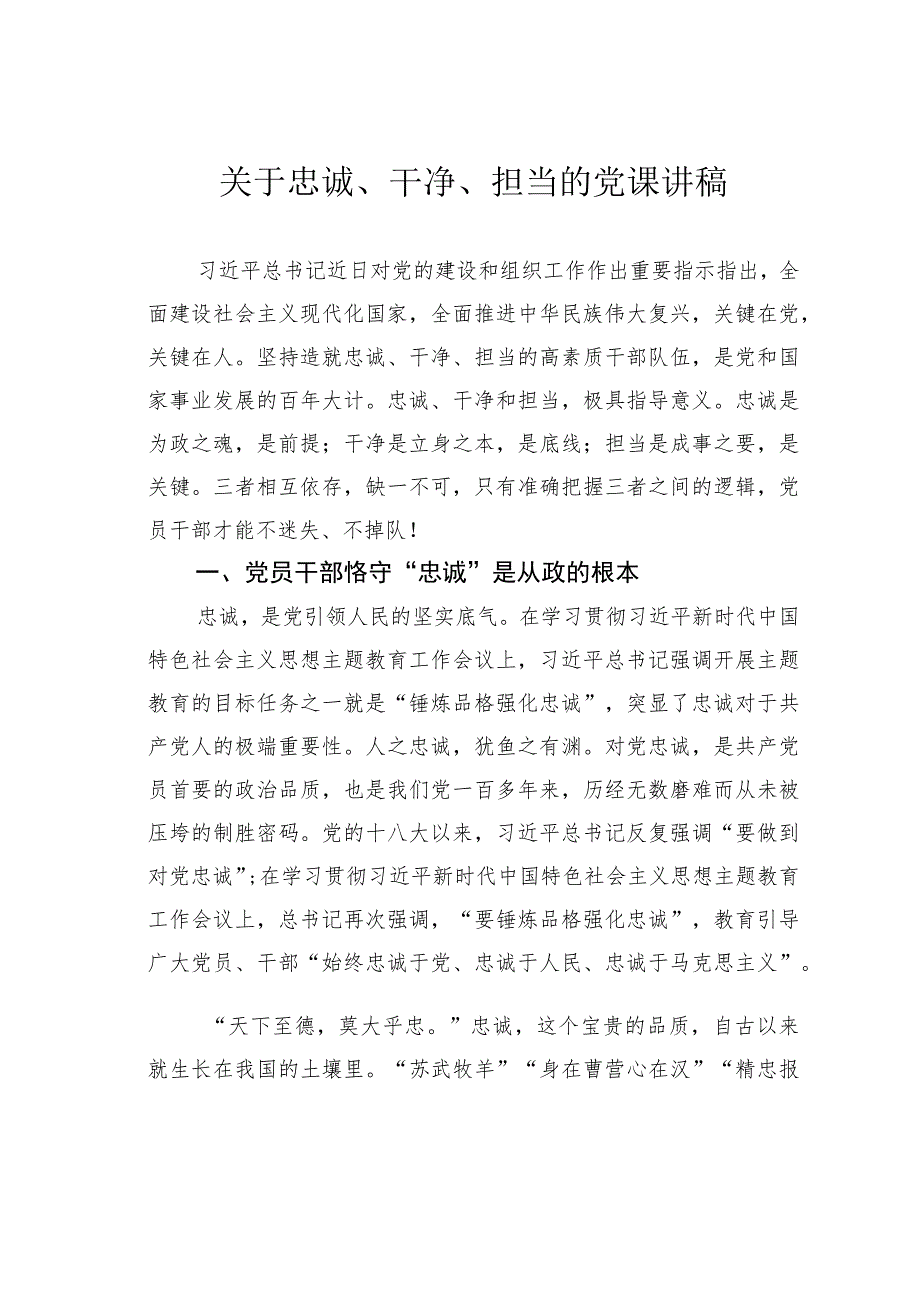 关于忠诚、干净、担当的党课讲稿
习近平总书记近日对党的建设和组织工作作出重要指示指出，全
面建设社会主义现代化国家，全面推进中华民族伟大复兴，关键在党，
关键在人。坚持造就忠诚、干净、担当的高素质干部队伍，是党和国
家事业发展的百年大计。忠诚、干净和担当，极具指导意义。忠诚是
为政之魂，是前提；干净是立身之本，是底线；担当是成事之要，是
关键。三者相互依存，缺一不可，只有准确把握三者之间的逻辑，党
员干部才能不迷失、不掉队！
一、党员干部恪守“忠诚”是从政的根本
忠诚，是党引领人民的坚实底气。在学习贯彻习近平新时代中国
特色社会主义思想主题教育工作会议上，习近平总书记强调开展主题
教育的目标任务之一就是“锤炼品格强化忠诚”，突显了忠诚对于共
产党人的极端重要性。人之忠诚，犹鱼之有渊。对党忠诚，是共产党
员首要的政治品质，也是我们党一百多年来，历经无数磨难而从未被
压垮的制胜密码。党的十八大以来，习近平总书记反复强调“要做到
对党忠诚”;在学习贯彻习近平新时代中国特色社会主义思想主题教育
工作会议上，总书记再次强调，“要锤炼品格强化忠诚”，教育引导
广大党员、干部“始终忠诚于党、忠诚于人民、忠诚于马克思主义”。
“天下至德，莫大乎忠。”忠诚，这个宝贵的品质，自古以来
就生长在我国的土壤里。“苏武牧羊”“身在曹营心在汉”“精忠报